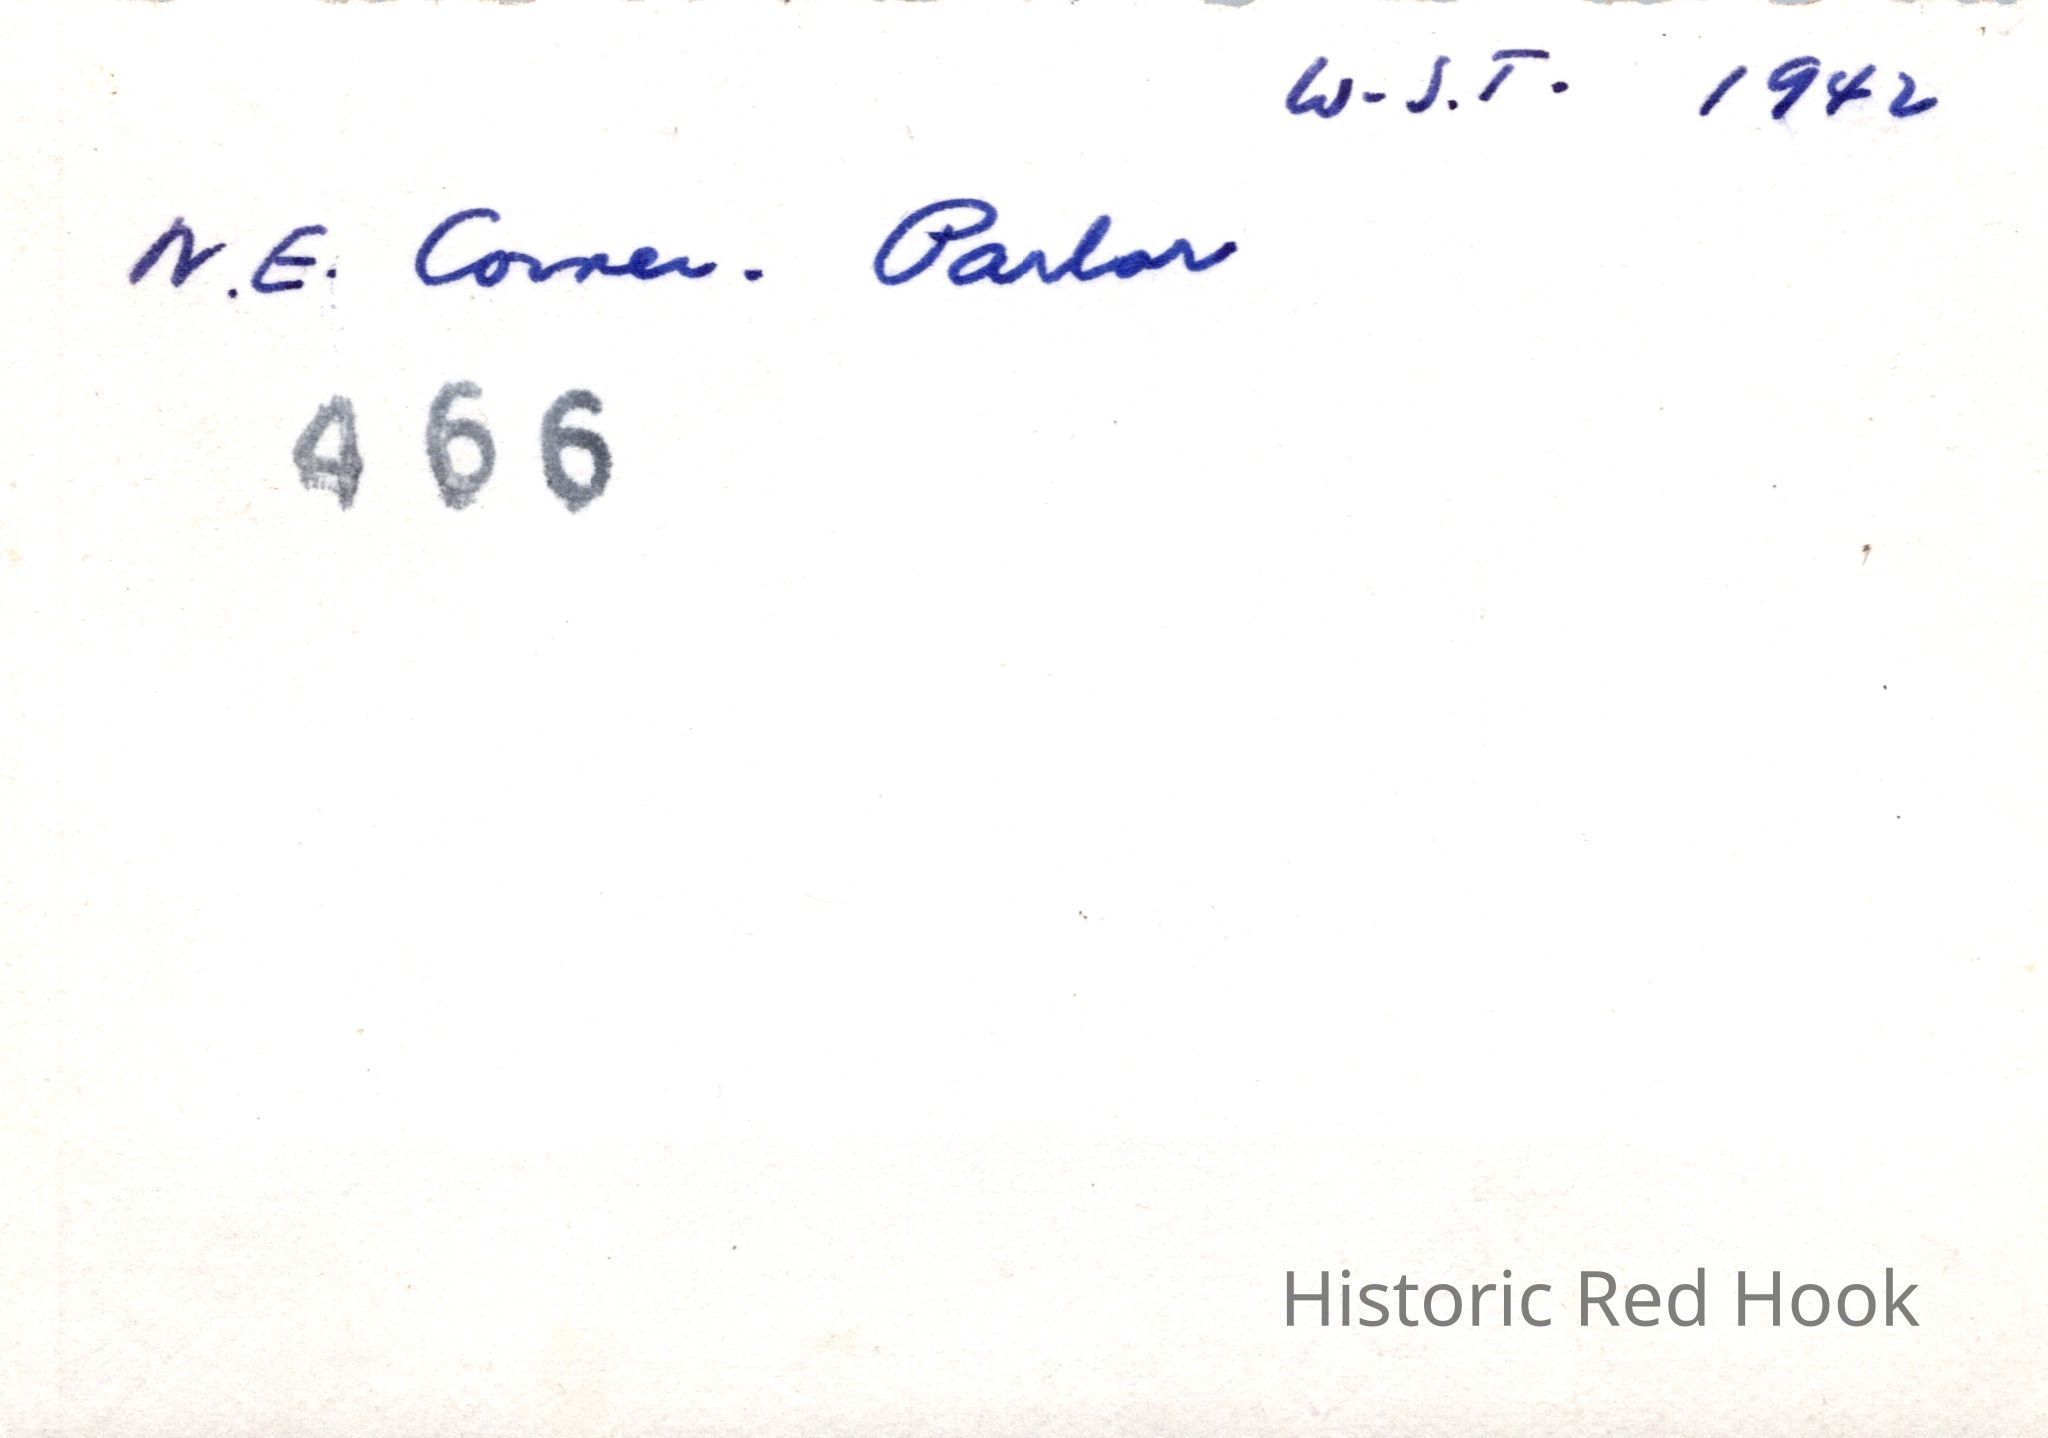 W-S.T. 1942
N.E. Corner. Parlor
466
Historic Red Hook